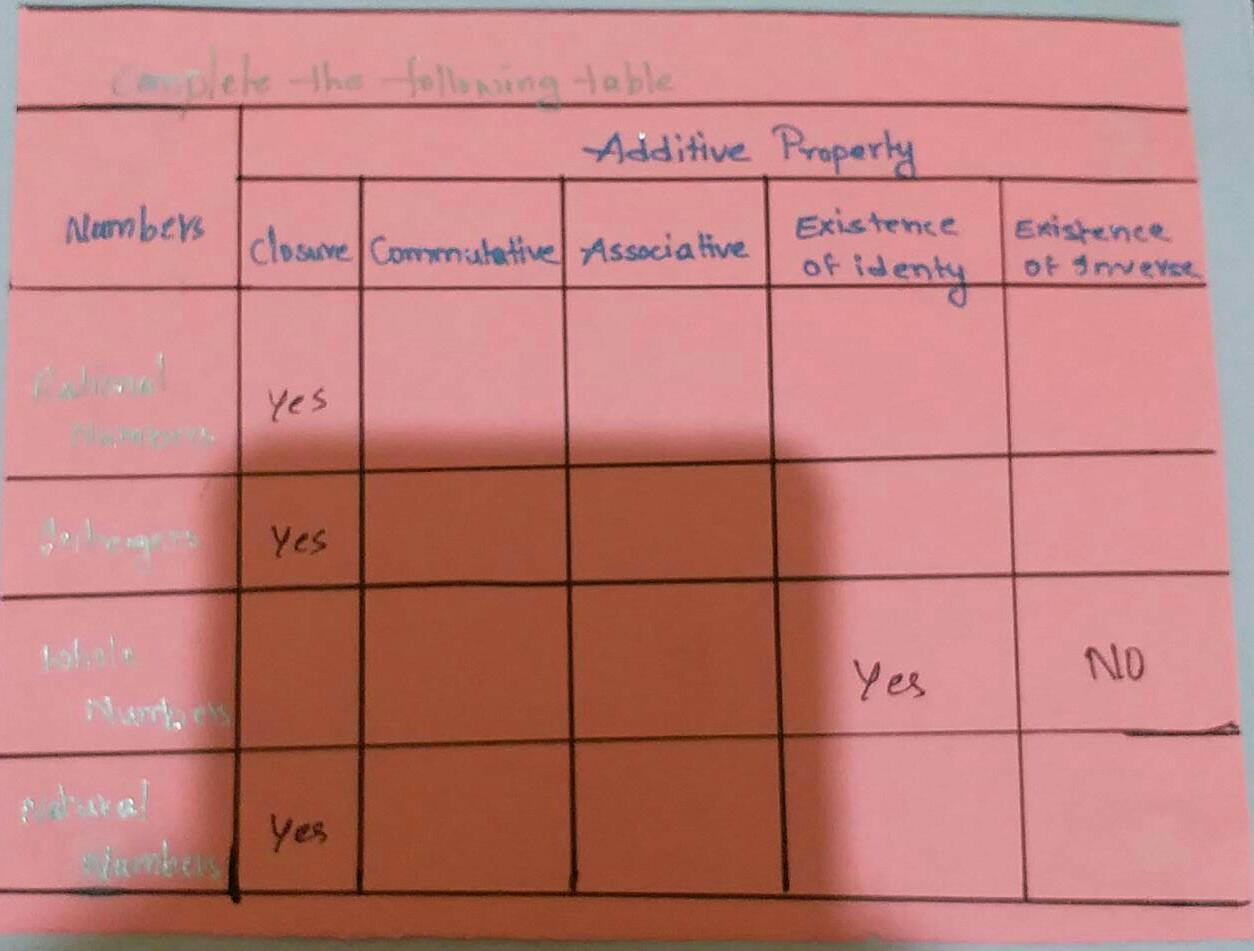 Complete the following table
Additive Property
Numbers
Closure Commutative Associative Existence of identy Existence of Inverse
Rational
Numbers
Yes
Integers
Yes
Whole
Numbers
Yes
NO
Natural
Numbers
Yes